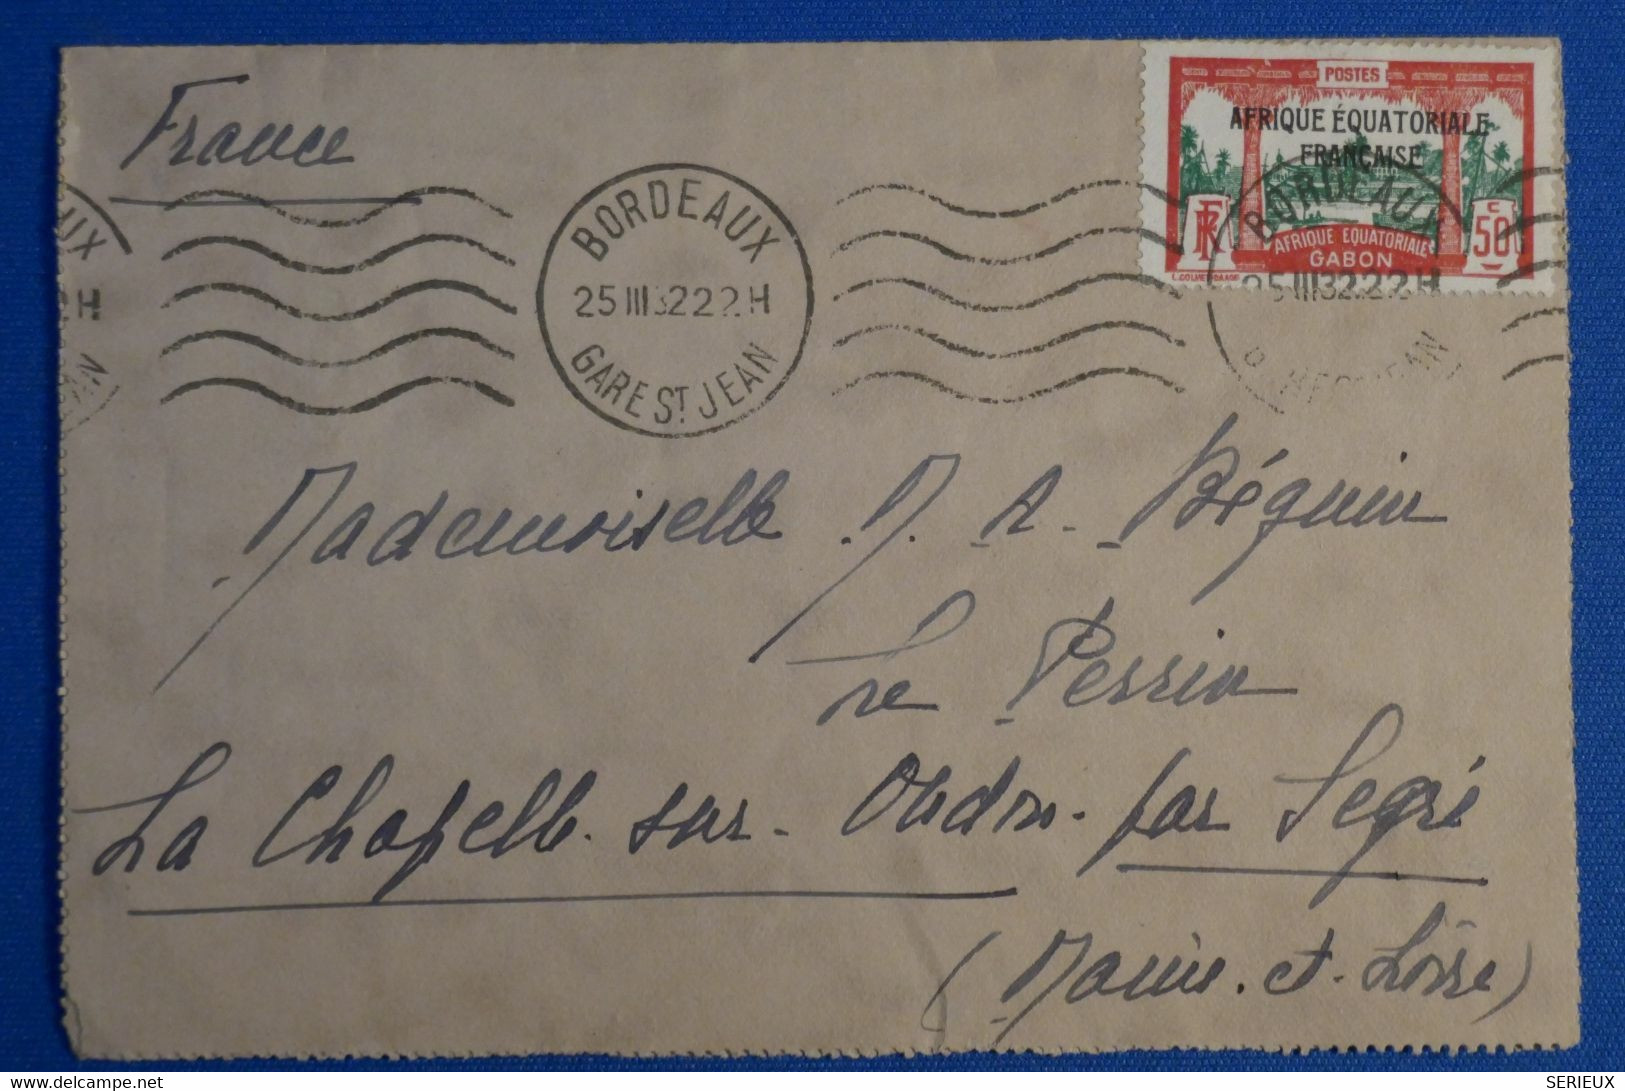 France
POSTES
AFRIQUE ÉQUATORIALE
FRANÇAISE
RF
AFRIQUE EQUATORIALE
GABON
C
50
BORDEAUX
25 III 32 22 H
GARE ST JEAN
BORDEAUX
25 III 32 22 H
UX
H
EAN
Mademoiselle M. A. Béguin
Le Perrin
La Chapelle-sur-Oudon-par Segré
(Maine-et-Loire)
SERIEUX